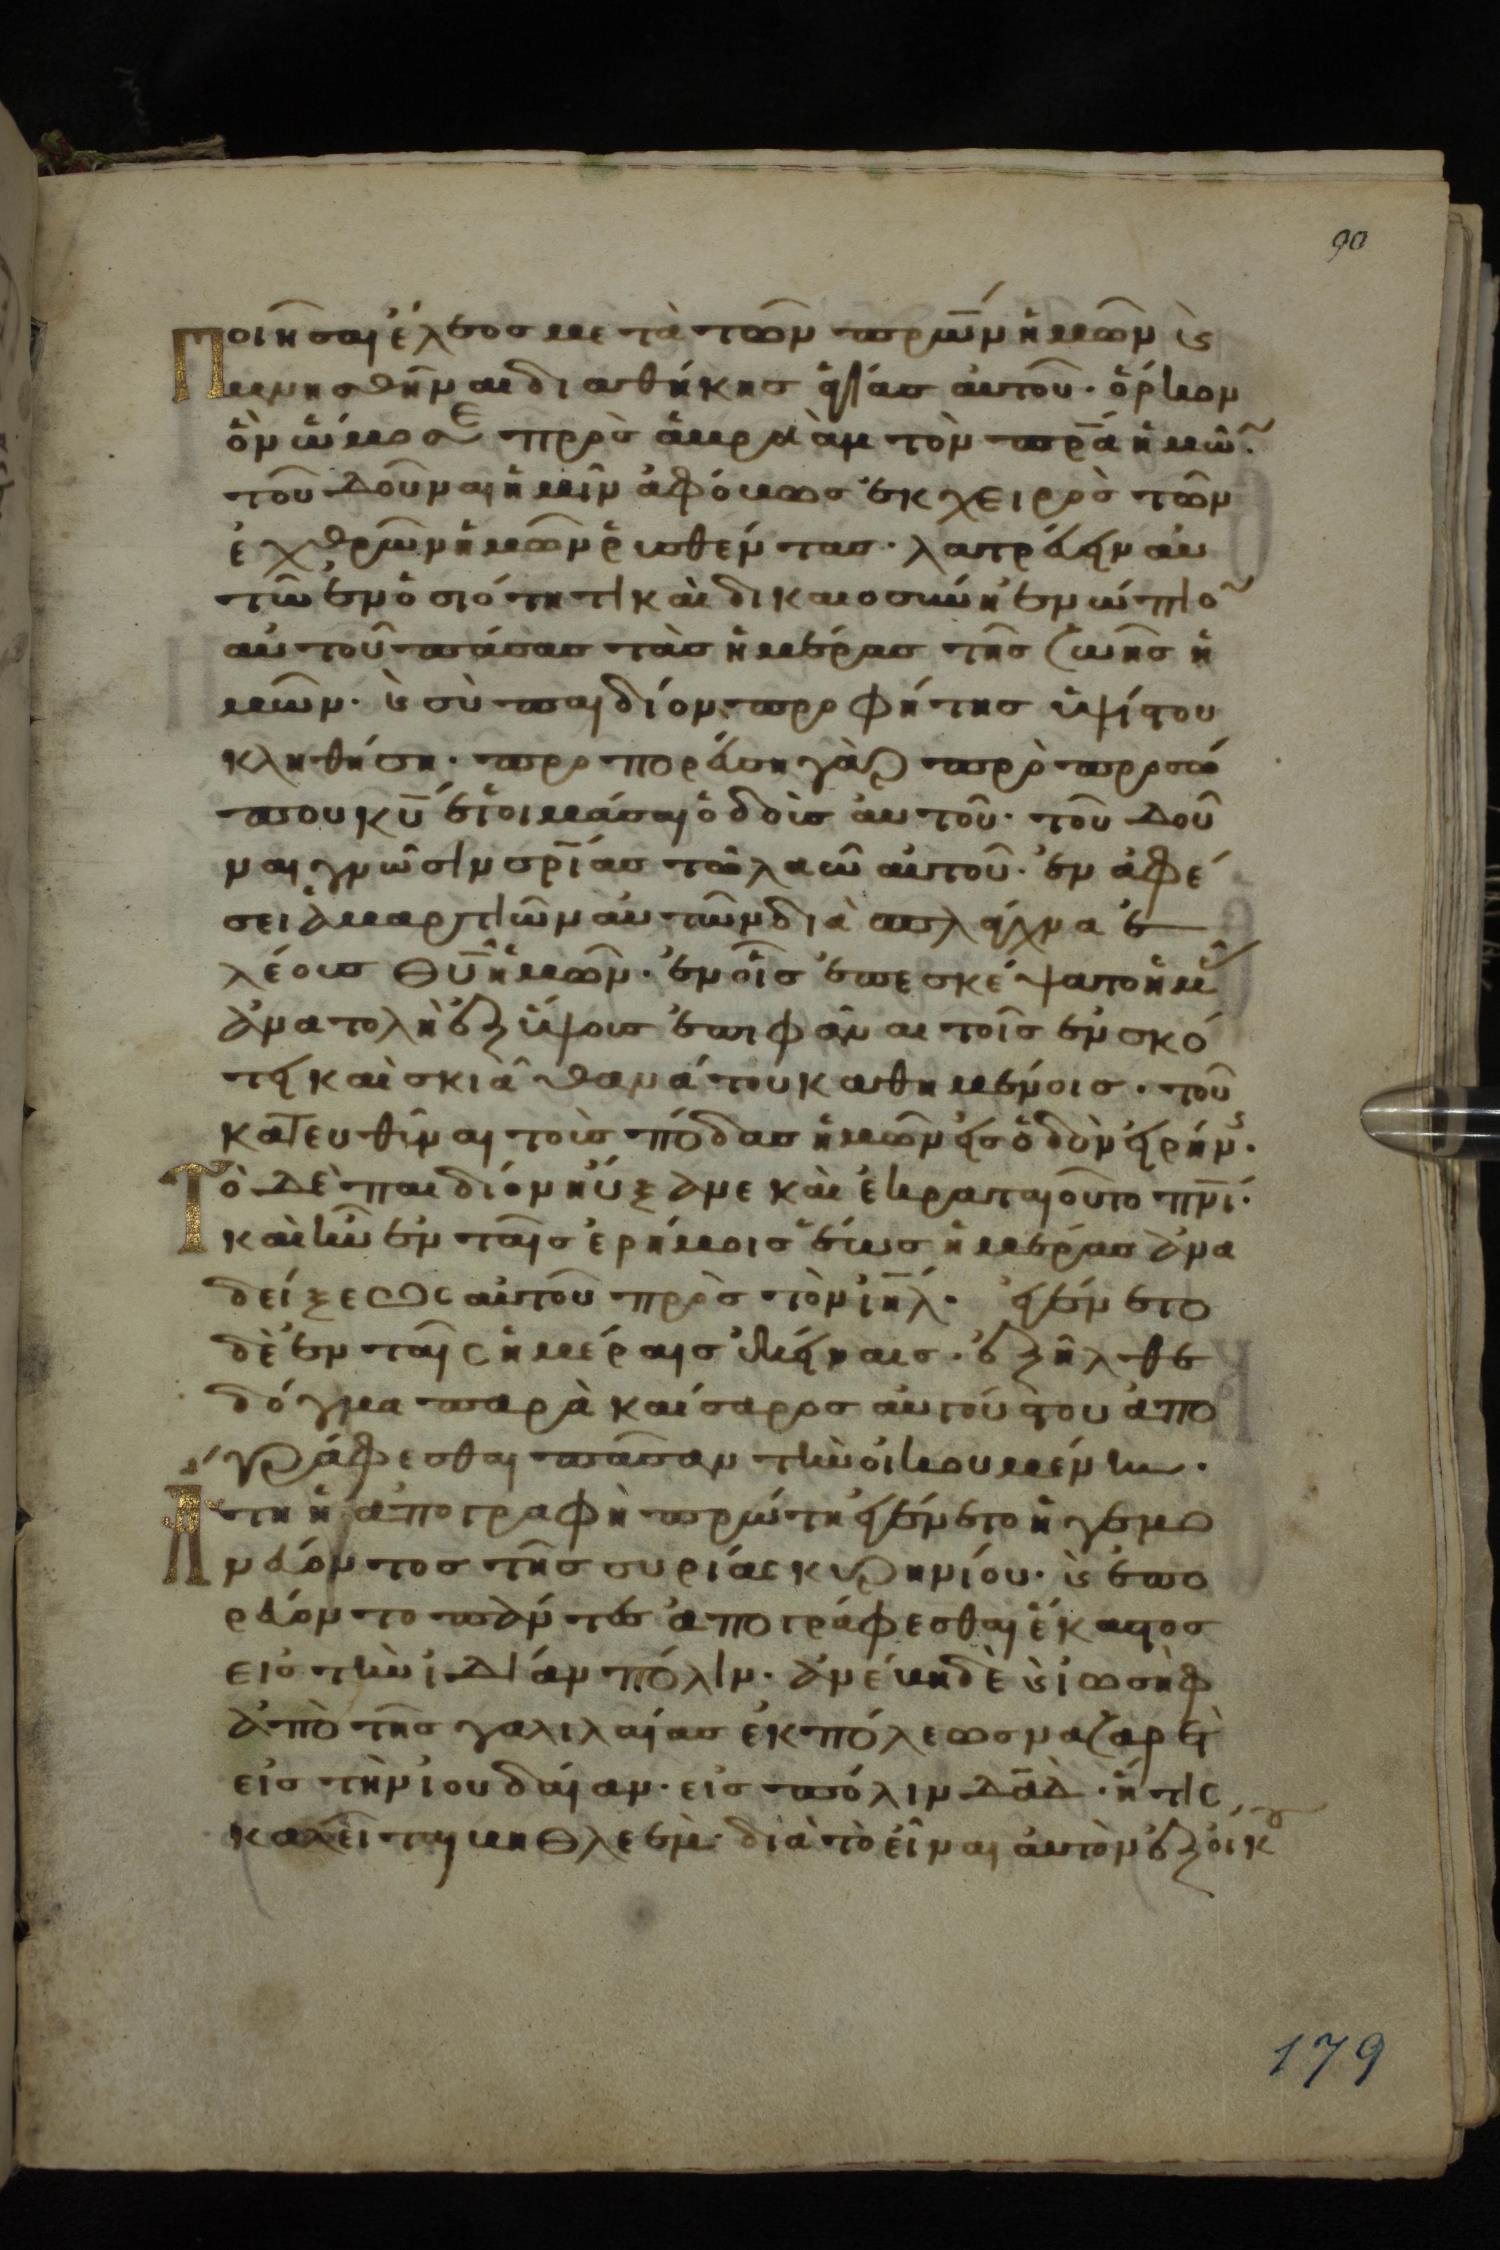 90
Ποιῆσαι ἔλεος μετὰ τῶν πρω̅ν ἡμῶν κ̀
μνησθῆναι διαθήκης ἁγίας αὐτοῦ· ὅρκον
ὃν ὤμοσε πρὸς ἀβραὰμ τὸν πρ̅α ἡμῶ̃·
τοῦ δοῦναι ἡμῖν ἀφόβως ἐκ χειρὸς τῶν
ἐχθρῶν ἡμῶν ῥυσθέντας· λατρεύειν αὐ
τῶ ἐν ὁσιότητι καὶ δικαιοσύνη ἐνώπιο̃
αὐτοῦ πάσας τὰς ἡμέρας τῆς ζωῆς ἡ
μῶν· κ̀ σὺ παιδίον προφήτης ὑψίστου
κληθήση· προπορεύση γὰρ πρὸ προσώ
που κ̅υ ἑτοιμάσαι ὁδοὺς αὐτοῦ· τοῦ δοῦ
ναι γνῶσιν σρ̅ίας τῶ λαῶ αὐτοῦ· ἐν ἀφέ
σει ἁμαρτιῶν αὐτῶν διὰ σπλάγχνα ἐ
λέους θ̅υ ἡμῶν· ἐν οἷς ἐπεσκέψατο ἡμᾶς
ἀνατολὴ ἐξ ὕψους ἐπιφᾶναι τοῖς ἐν σκό
τει καὶ σκιᾶ θανάτου καθημένοις· τοῦ
κατευθῦναι τοὺς πόδας ἡμῶν εἰς ὁδὸν εἰρήνης·
Τὸ δὲ παιδίον ηὔξανε καὶ ἐκραταιοῦτο πν̅ι·
καὶ ἦν ἐν ταῖς ἐρήμοις ἕως ἡμέρας ἀνα
δείξεως αὐτοῦ πρὸς τὸν ι̅η̅λ· ἐγένετο
δὲ ἐν ταῖς ἡμέραις ἐκείναις· ἐξῆλθε
δόγμα παρὰ καίσαρος αὐγούστου ἀπο
γράφεσθαι πᾶσαν τὴν οἰκουμένην·
Αὕτη ἡ ἀπογραφὴ πρώτη ἐγένετο ἡγεμο
νεύοντος τῆς συρίας κυρηνίου· κ̀ ἐπο
ρεύοντο πάντες ἀπογράφεσθαι ἕκαστος
εἰς τὴν ἰδίαν πόλιν· ἀνέβη δὲ κ̀ ἰωσὴφ
ἀπὸ τῆς γαλιλαίας ἐκ πόλεως ναζαρὲτ
εἰς τὴν ἰουδαίαν· εἰς πόλιν δ̅α̅δ· ἥτις
καλεῖται βηθλεὲμ· διὰ τὸ εἶναι αὐτὸν ἐξ οἴκου
179